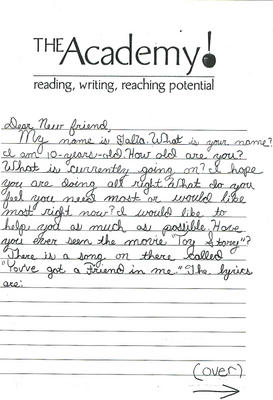 THE Academy!
reading, writing, reaching potential
Dear New friend,
My name is Galia. What is your name?
I am 10-years-old. How old are you?
What is currently going on? I hope
you are doing all right. What do you
feel you need most or would like
most right now? I would like to
help you as much as possible. Have
you ever seen the movie "Toy Story"?
There is a song on there called
"You've got a Friend in me." The lyrics
are:
(over)